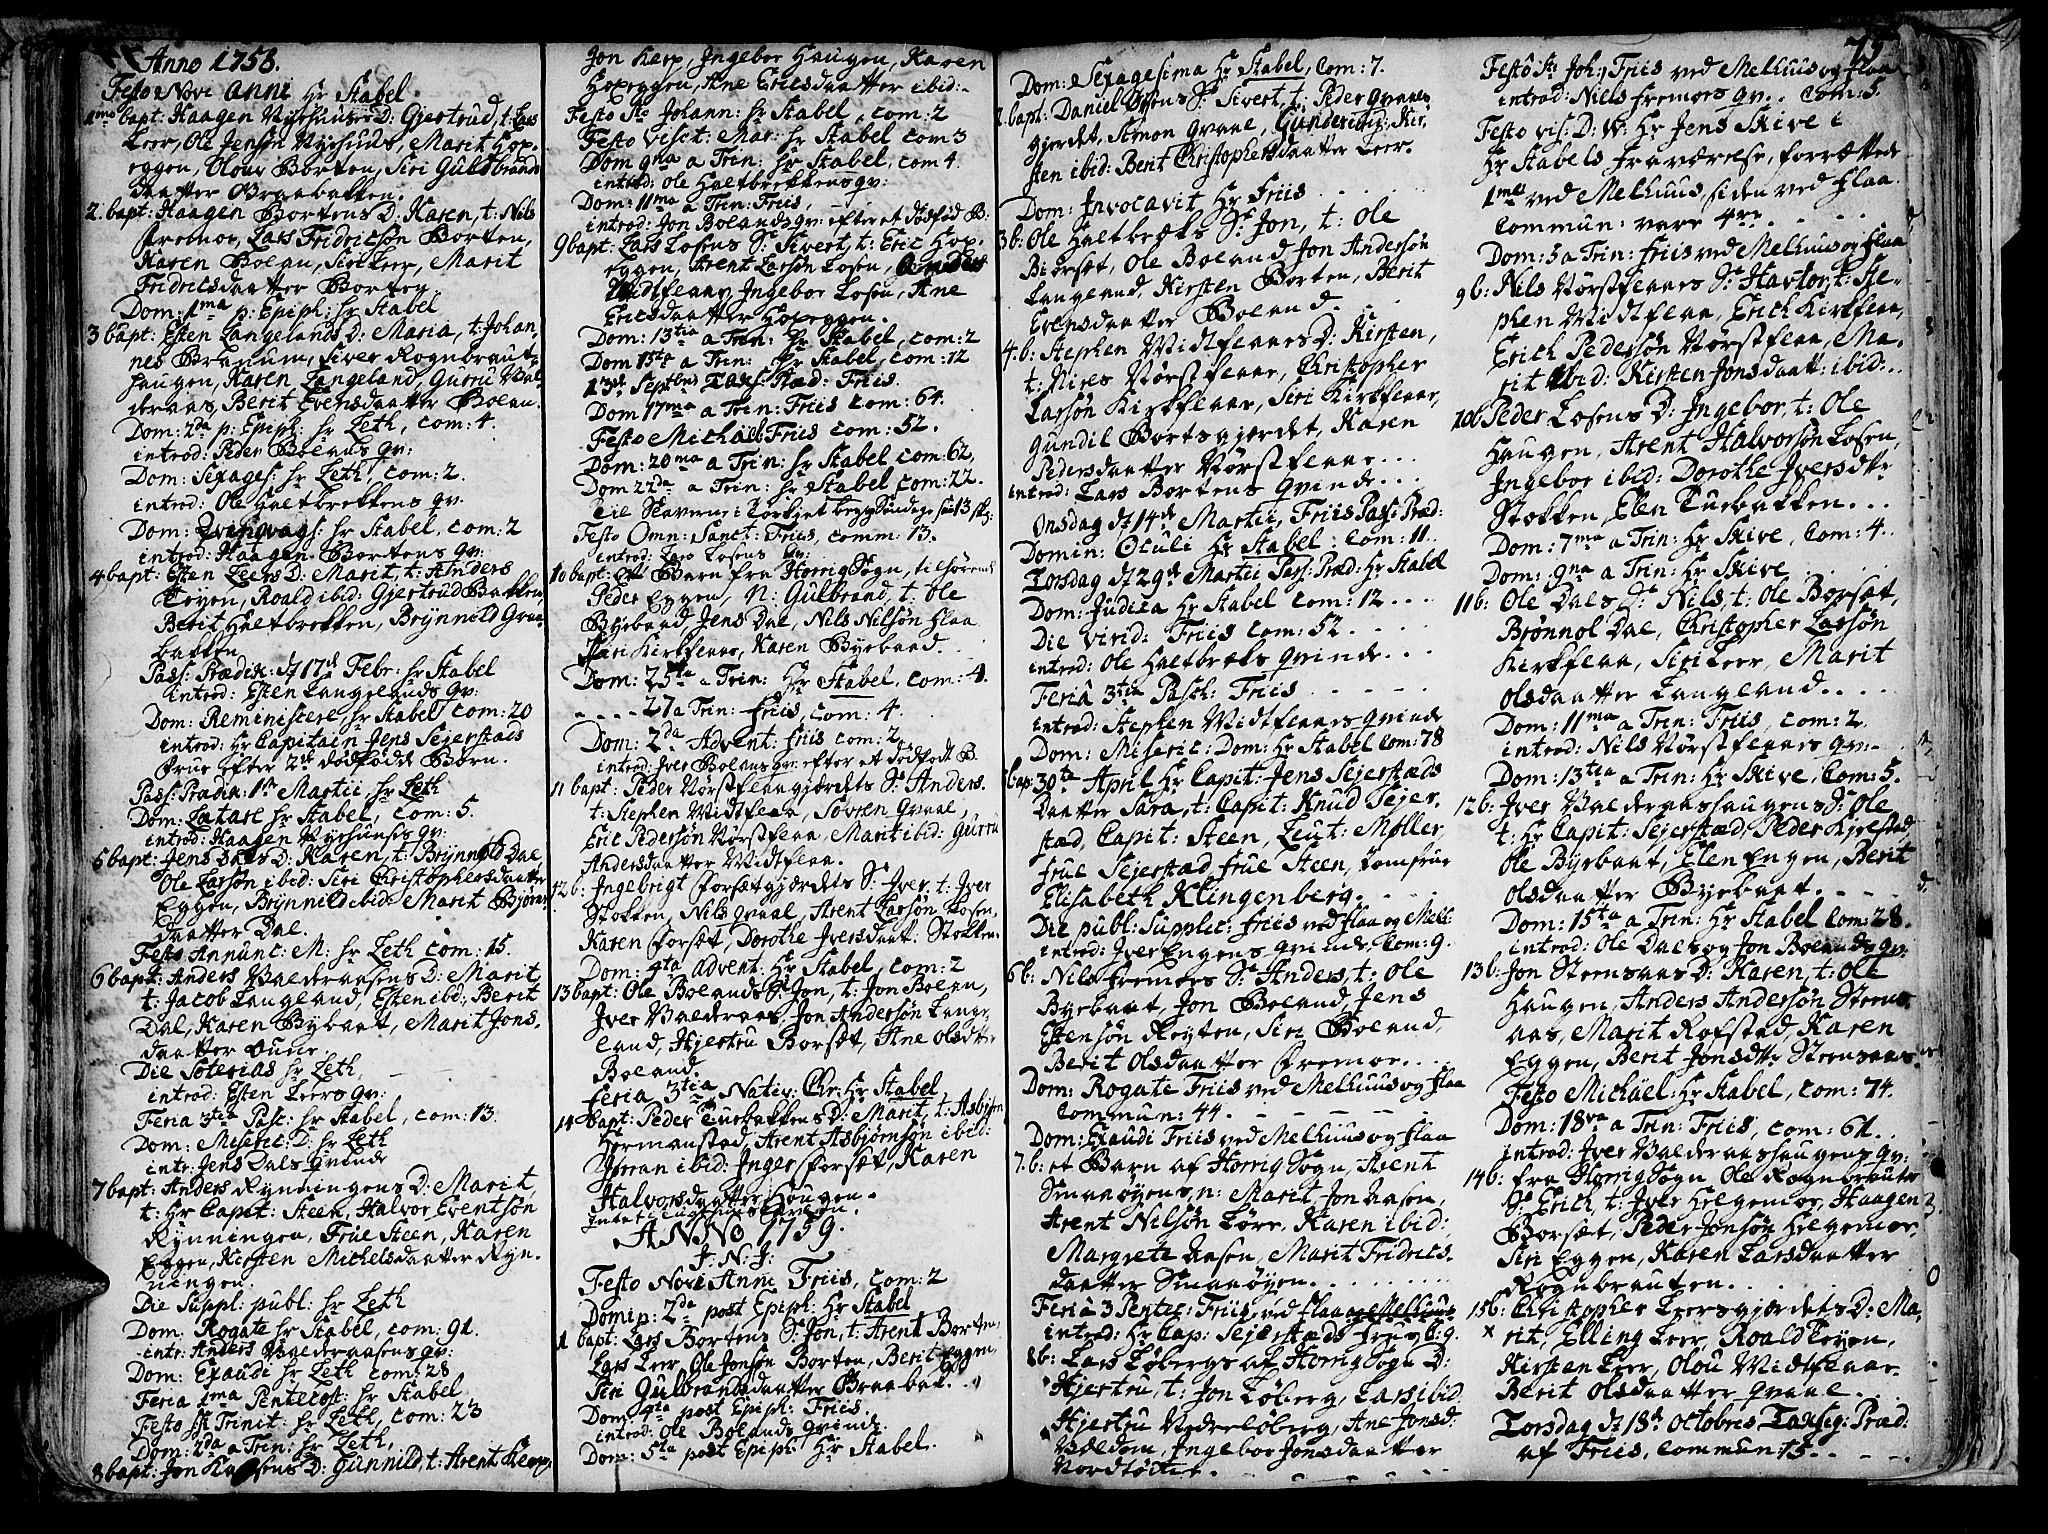 Anno 1758.
Festo Novi Anni Hr Stabel.
1mo bapt: Haagen Nyehuuses D: Gjertrud, t: Lars
Leer, Ole Jensön Nyehuus, Marit Hop-
eggen, Olou Borten, Siri Guldbrands
daatter Braabakken.
2 bapt: Haagen Bortens D: Karen, t: Nils
Fremoe, Lars Fridricsön Borten,
Karen Boelan, Siri Leer, Marit
Fridricsdaatter Borten.
Dom: 1ma p: Epiph: hr Stabel
3 bapt: Esten Langelands D: Maria, t: Johan-
nes Braanum, Siver Rognbraut-
haugen, Karen Langeland, Gurru Val-
deraas, Berit Evensdaatter Boelan.
Dom: 2da p: Epiph: hr Leth, com: 4.
introd: Peder Boelans qv:
Dom: Sexages: hr Leth, com: 2.
introd: Ole Haltbrekkens qv:
Dom: Qvinqvags: hr Stabel, com: 2
introd: Haagen Bortens qv:
4 bapt: Esten Leers D: Marit, t: Anders
Løyen, Roald ibid: Gjertrud Bakken,
Berit Haltbrekken, Brynnild Graa-
bakken
Pass: Prædik: d 17d Febr: hr Stabel
introd: Esten Langelands qv:
Dom: Reminiscere, hr Stabel com: 20
introd: Hr Capitain Jens Sejerstads
Frue efter 2de dødfødde Børn.
Pass: Prædik: 1st Martii, hr Leth
Dom: Lætare hr Stabel, com: 5.
introd: Haagen Nyehuuses qv:
5 bapt: Jens Dals D: Karen, t: Brynnold Dal,
Ole Larsön ibid: Siri Christophersdaatter
Eggen, Brynnild ibid: Marit Bjørns
daatter Dal.
Festo Annunc: M: hr Leth com: 15.
6 bapt: Anders Valderaasens D: Marit,
t: Jacob Langeland, Esten ibd, Berit
Dal, Karen Bybaat, Marit Jons-
daatter Lune
Die Soterias hr Leth
introd: Esten Leers qv:
Feria 3tia Pasc: hr Stabel, com: 13.
Dom: Miseric: D: hr Leth
intr: Jens Dals qvinde
7 bapt: Anders Rynningens D: Marit,
t: Hr Capit: Steen, Halvor Eventsön
Rynningen, Frue Steen, Karen
Eggen, Kirsten Michelsdaatter Ryn-
ningen.
Die Suppl: publ: hr Leth
Dom: Rogate hr Stabel, com: 91.
intr: Anders Valderaasens qv:
Dom: Exaudi hr Leth com: 28
Feria 1ma Pentecost: hr Stabel
Festo St Trinit: hr Leth, com: 23
Dom: 2da a Trin: hr Leth,
8 bapt: Jon D: Gunnild, t: Arent Kerp,
Jon Kerp, Ingebor Haugen, Karen
Hopeggen, Ane Ericsdaatter ibid:
Festo St Johann: hr Stabel, com: 2
Festo Visit: Mar: hr Stabel com 3
Dom 9na a Trin: hr Stabel, com 4.
introd: Ole Haltbrekkens qv:
Dom: 11ma a Trin: Friis,
introd: Jon Boelands qv: efter et dødfød B.
9 bapt: Lars Losens S: Sivert, t: Eric Hop-
eggen, Arent Larsön Losen, Anders
Midtflaar, Ingebor Losen, Ane
Ericsdaatter Hopeggen.
Dom: 13tia a Trin: hr Stabel, com: 2
Dom 15ta a Trin: hr Stabel, com: 12
13d Septbris Taks: Præd: Friis.
Dom 17ma a Trin: Friis com: 64.
Festo Michaël Friis com: 52.
Dom: 20ma a Trin: hr Stabel com: 62,
Dom 22da a Trin: hr Stabel com: 22.
til Slaverne i Tyrkiet begge Sundage 13 sk:
Festo Omn: Sanct: Friis, comm: 13.
introd: Lars Losens qv:
10 bapt: Et Barn fra Horrig Sogn, tilhørende
Peder Eggen, N: Gulbrand, t: Ole
Byebaad, Jens Dal, Nils Nilsön Flaa
Siri Kirkflaar, Karen Byebaad.
Dom: 25ta a Trin: Hr Stabel, com: 4.
27 a Trin: Friis, com: 4.
Dom: 2da Advent: Friis com: 2
introd: Iver Boelans qv: efter et dødfødt B.
11 bapt: Peder Nørstflaagjærdets S: Anders.
t: Stephen Midtflaa, Søvren Qvaal,
Eric Pedersön Nørstflaa, Marit ibid: Gurru
Andersdaatter Midtflaa.
12 b: Ingebrigt Forsætgjærdets S: Iver, t: Iver
Stokken, Nils Qvaal, Arent Larsön Losen,
Karen Forsæt, Dorothe Iversdaat: Stokken.
Dom: 4ta Advent: Hr Stabel, com: 2
13 bapt: Ole Boelands S: Jon, t: Jon Boelan,
Iver Valderaas, Jon Andersön Lange-
land, Hjertru Borsæt, Ane Olsdtter
Boeland.
Feria 3tia Nativ: Chr: Hr Stabel
14 bapt: Peder Tuebakkens D: Marit, t: Asbjørn
Hermanstad, Arent Asbjørnsön ibid:
Jøran ibid: Inger Forsæt, Karen
Halvorsdaatter Hougen.
ANNO 1759.
J. N. J:
Festo Novi Anni Friis, com: 2
Domin: 2da post Epiph: Hr Stabel
1 bapt: Lars Bortens S: Jon, t: Arent Borten,
Lars Leer, Ole Jonsön Borten, Berit Eggen,
Siri Gulbrandsdaatter Braabak.
Dom: 4ta post Epiph: Friis.
introd: Ole Bolands qvinde.
Dom: 5ta post Epiph: Hr Stabel.
Dom: Sexagesima Hr Stabel, Com: 7.
2. bapt: Daniel S: Sivert, t: Peder Qvaals
gjerdet, Simon Qvaal, Gunder ibid: Kir-
sten ibid: Berit Christophersdaatter Leer.
Dom: Invocavit Hr Friis
3 b: Ole Haltbræks S: Jon, t: Ole
Biørsæt, Ole Boeland Jon Andersön
Langeland, Kirsten Borten, Berit
Evensdaatter Boeland.
4. b: Stephen Midtflaars D: Kirsten,
t: Nires Nørstflaar, Christopher
Larsön Kirkflaar, Siri Kirkflaar,
Gundil Bortsgjærdet, Karen
Pedersdaatter Nørstflaar...
introd: Lars Bortens qvinde...
Onsdag d 14d Martii, Friis Pass: Præd:
Domin: Oculi Hr Stabel. Com: 11.
Torsdag d 29d Martii Pass: Præd: Hr Stabel
Dom: Judica Hr Stabel Com: 12....
Die Virid: Friis com: 52.
introd: Ole Haltbræks qvinde...
Feriâ 3tia Pasch: Friis
introd: Stephen Midtflaars qvinde
Dom: Miseric: Dom: Hr Stabel Com: 78
5 bap: 30te April Hr Capit: Jens Sejerstads
Daatter Sara, t: Capit: Knud Sejer-
stad, Capit: Steen, Leut: Møller,
Frue Sejerstad, Frue Steen, Jomfrue
Elisabeth Klingenberg.
Die publ: Supplic: Friis ved Flaa og Mell:
introd: Iver Engens qvinde, Com: 9.
6 b: Nils Fremoes S: Anders, t: Ole
Byebaat, Jon Boeland, Jens
Estensön Røyten, Siri Boeland,
Berit Olsdaatter Fremoe...
Dom: Rogate Friis ved Melhuus og Flaa
Commun: 44.
Dom: Exaudi Friis ved Melhuus og Flaa
7. b: et Barn af Horrig Sogn, Arent
Smaaøyens, n: Marit, Jon Aasen,
Arent Nilsön Lørr, Karen ibid:
Margrete Aasen, Marit Fridrics-
daatter Smaaøyen.
Feria 3 Pentec: Friis, ved Flaa og Melhuus
introd: Hr Cap: Sejerstads Frue, C: 9.
8 b: Lars Løbergs af Horrig Sogn D:
Hjertru, t: Jon Løberg, Lars ibid
Hjertru Nederløberg, Ane Jonsd:
Vældom, Ingebor Jonsdaatter
Nordtømme.
75
Festo St Joh: Friis ved Melhuus og Flaa
introd: Niels Fremoes qv.. Com: 5.
Festo Vis: D: V: Hr Jens Skive i
Hr Stabels Fraværelse, forrettede
1mes ved Melhuus, siden ved Flaa.
Commun: vare 4re.
Dom: 5 a Trin: Friis ved Melhuus og Flaa
9 b: Nils Nørstflaars S: Havtor, t: Ste-
phen Midtflaa, Erich Kirkflaa,
Erich Pedersön Nørstflaa, Ma-
rit ibid: Kirsten Jonsdaatt: ibid:
10 b: Peder Losens D: Ingebor, t: Ole
Haugen, Arent Halvorsön Losen,
Ingebor ibid: Dorothe Iversdtr
Stokken, Elen Tuebakken...
Dom: 7ma a Trin: Hr Skive, Com: 4..
Dom: 9na a Trin: Hr Skive
11 b: Ole Dals S: Nils, t: Ole Borsæt,
Brønnol Dal, Christopher Larsön
Kirkflaa, Siri Leer, Marit
Olsdaatter Langeland....
Dom: 11ma a Trin: Friis, com: 2
introd: Nils Nørstflaars qv:
Dom: 13tia a Trin: Hr Skive, Com: 5.
12 b: Iver Valderaashaugens S: Ole
t: Hr Capit: Sejerstad, Peder Kjerstad,
Ole Byebaat, Elen Engen, Berit
Olsdaatter Byebaat.
Dom: 15ta a Trin: Hr Stabel Com: 28.
introd: Ole Dals og Jon Boelands qv:
13 b: Jon Steensaas D: Karen, t: Ole
Haugen, Anders Andersön Steens-
aas, Marit Rofstad, Karen
Eggen, Berit Jonsdtr Steensaas.
Festo Michaël: Hr Stabel, com: 74.
Dom: 18va a Trin: Friis, com: 61.
introd: Iver Valderaashaugens qv:
14 b: fra Horrig Sogn Ole Rognbrauts
S: Erich, t: Iver Helgemoe, Haagen
Borsæt, Peder Jonsön Helgemoe,
Siri Eggen, Karen Larsdaatter
Rognbrauten.
15 b: Christopher Leersgjærdets D: Ma-
rit, Elling Leer, Roald Løyen,
Kirsten Leer, Olou Midtflaar
Berit Olsdaatter Qvaal.
Torsdag d 18d Octobris Taksig: Præd:
af Friis, commun: 15.